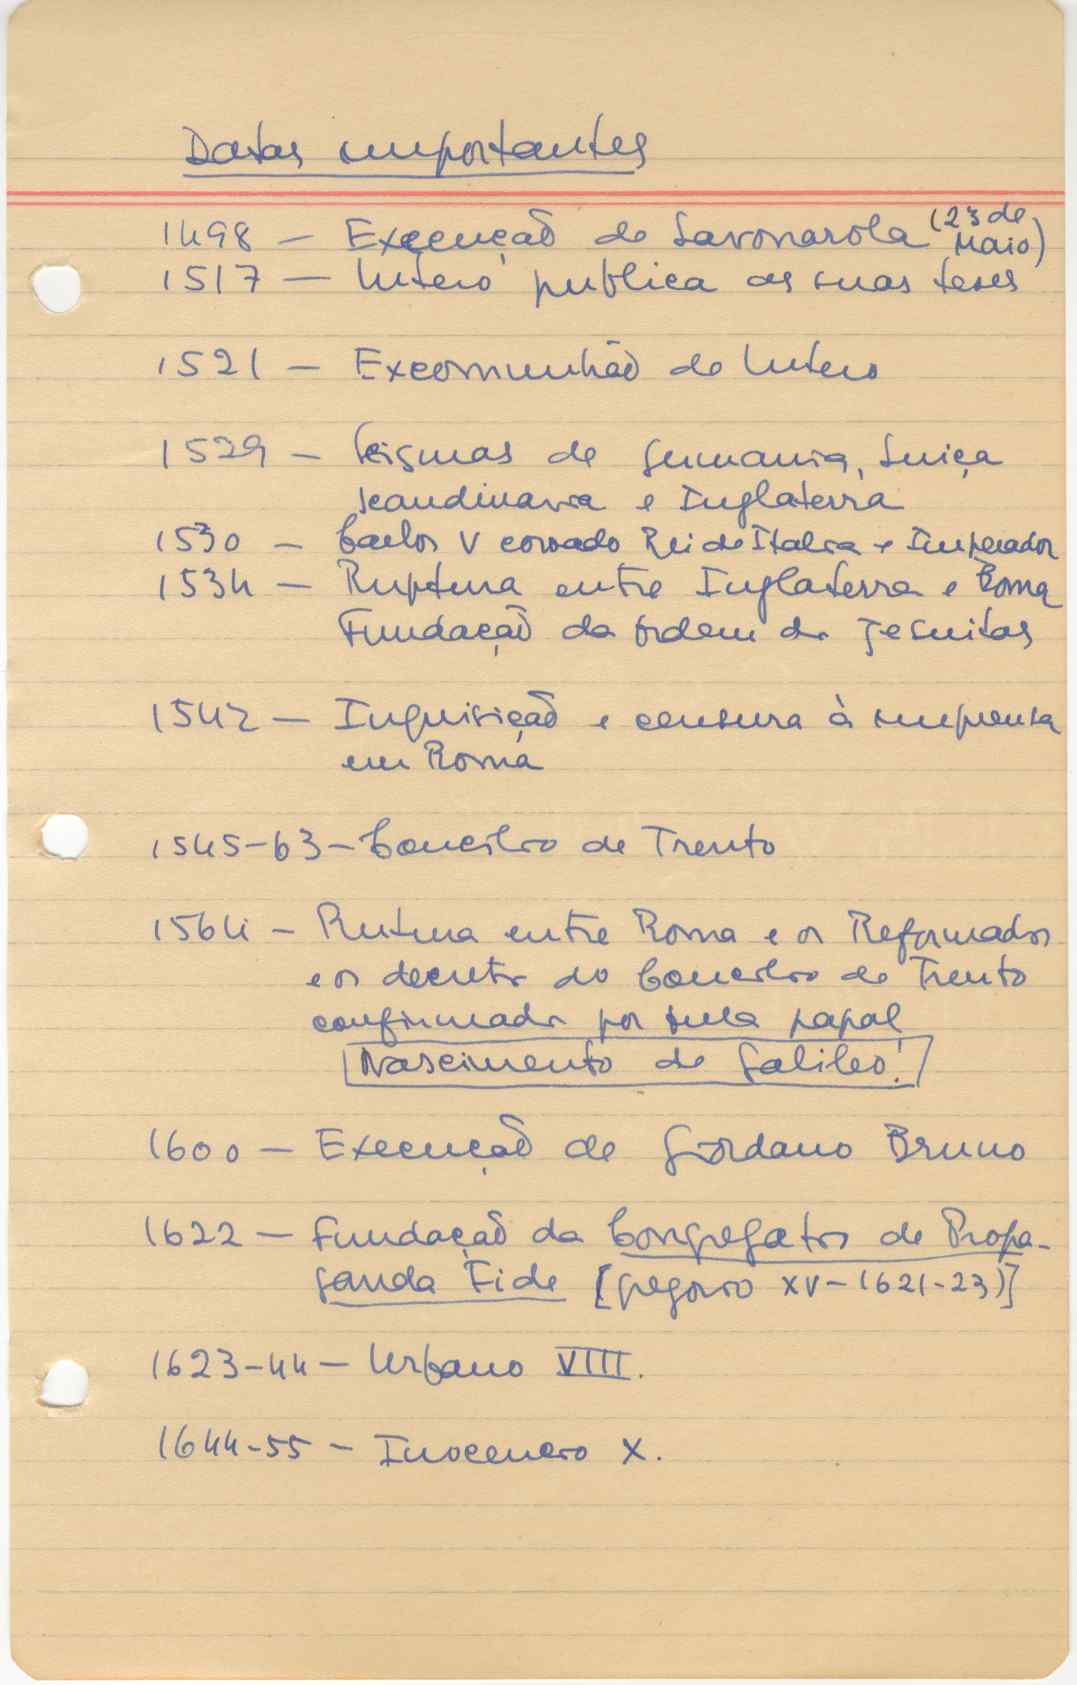 Datas importantes
1498 — Execução de Savonarola (23 de Maio)
1517 — Lutero publica as suas teses
1521 — Excomunhão de Lutero
1529 — Cismas de Germania, Suiça
Scandinavia e Inglaterra
1530 — Carlos V coroado Rei de Italia e Imperador
1534 — Ruptura entre Inglaterra e Roma
Fundação da ordem dos Jesuitas
1542 — Inquisição e censura à imprensa
em Roma
1545-63 — Concilio de Trento
1564 — Rutura entre Roma e os Reformados
e os decretos do Concilio de Trento
confirmados por bula papal
Nascimento de Galileo!
1600 — Execução de Giordano Bruno
1622 — Fundação da Congregatio de Propa-
ganda Fide [Gregorio XV — 1621-23)]
1623-44 — Urbano VIII.
1644-55 — Inocencio X.